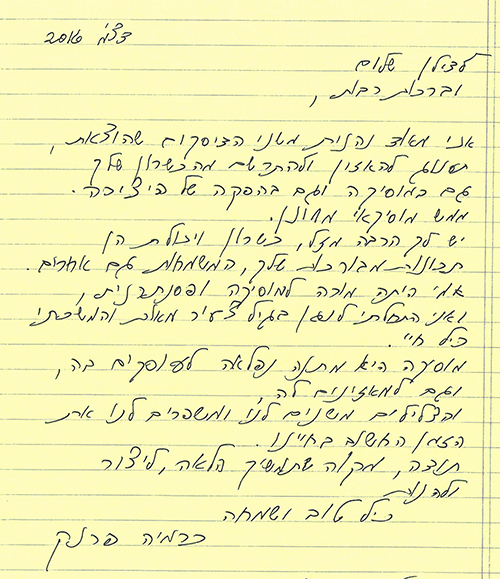 דצמ' 2016
לעצילן שלום
וברכות רבות,
אני מאוד נהנית משני הדיסקים שהוצאת,
תענוג להאזין ולהתרשם מהכשרון שלך
גם במוסיקה וגם בהפקה של היצירה.
ממש מוסיקאי מחונן.
יש לך הרבה מזל, כשרון ויכולת הן
תכונות מבורכות שלך, המשמחות גם אחרים.
אמי היתה מורה למוסיקה ופסנתרנית,
ואני התחלתי לנגן בגיל צעיר מאוד והמשכתי
כל חיי.
מוסיקה היא מתנה נפלאה לעוסקים בה,
וגם למאזינים לה,
והצלילים משנים לנו ומשפרים לנו את
הזמן החשוב בחיינו.
תודה, מקוה שתמשיך הלאה, ליצור
ולהנות
כל טוב ושמחה
כרמיה פרנק